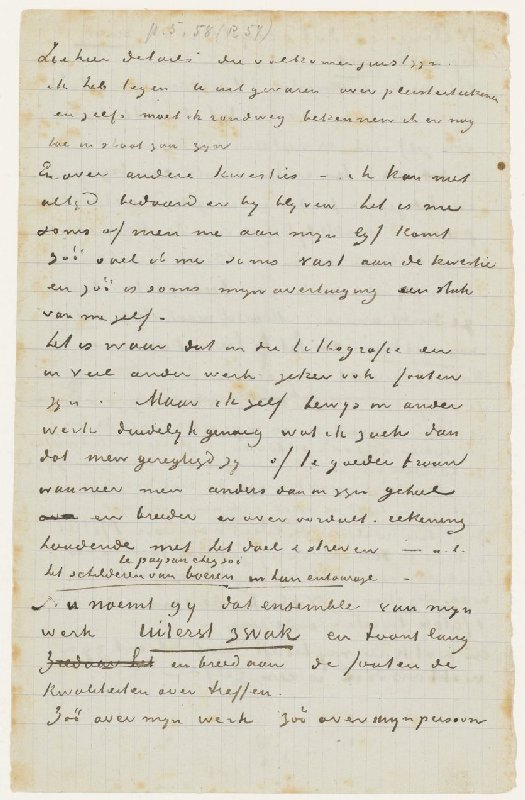 R. 5. 58 (R 58)
Ziehier details die volkomen juist zyn.
ik heb tegen u uitgevaren over
en zelfs moet ik rondweg bekennen ik er nog
toe in staat zou zyn
En over andere kwesties – ik kan niet
altyd bedaard er by blyven het is me
soms of men me aan myn lyf komt
zóó voel ik me soms vast aan de kwestie
en zóó is soms myn overtuiging een stuk
van me zelf.
Het is waar dat in die lithografie en
in veel ander werk zeker ook fouten
zyn. Maar ik zelf bewys in ander
werk duidelyk genoeg wat ik zoek dan
dat men geregtigd zy of te goeder trouw
wanneer men anders dan in zyn geheel
en breeder er over oordeelt. rekening
houdende met het doel & streven — n.l.
le paysan chez soi
het schilderen van boeren in hun entourage –
Nu noemt gy dat ensemble van myn
werk uiterst zwak en toont lang
en breed aan de fouten de
kwaliteiten over treffen.
Zóó over myn werk zóó over myn persoon